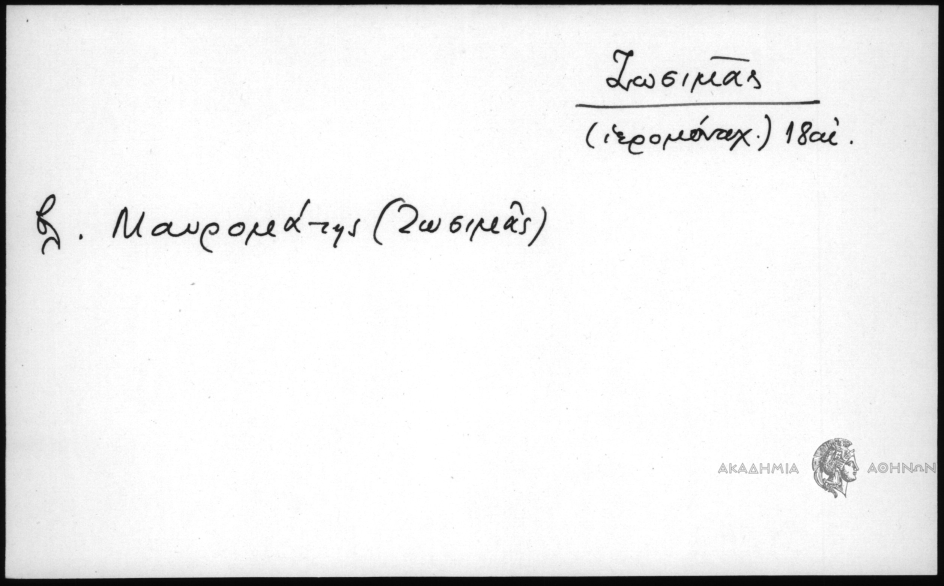 Ζωσιμᾶς
(ἱερομόναχ.) 18αἰ.
βλ. Μαυρομάτης (Ζωσιμᾶς)
ΑΚΑΔΗΜΙΑ ΑΘΗΝΩΝ